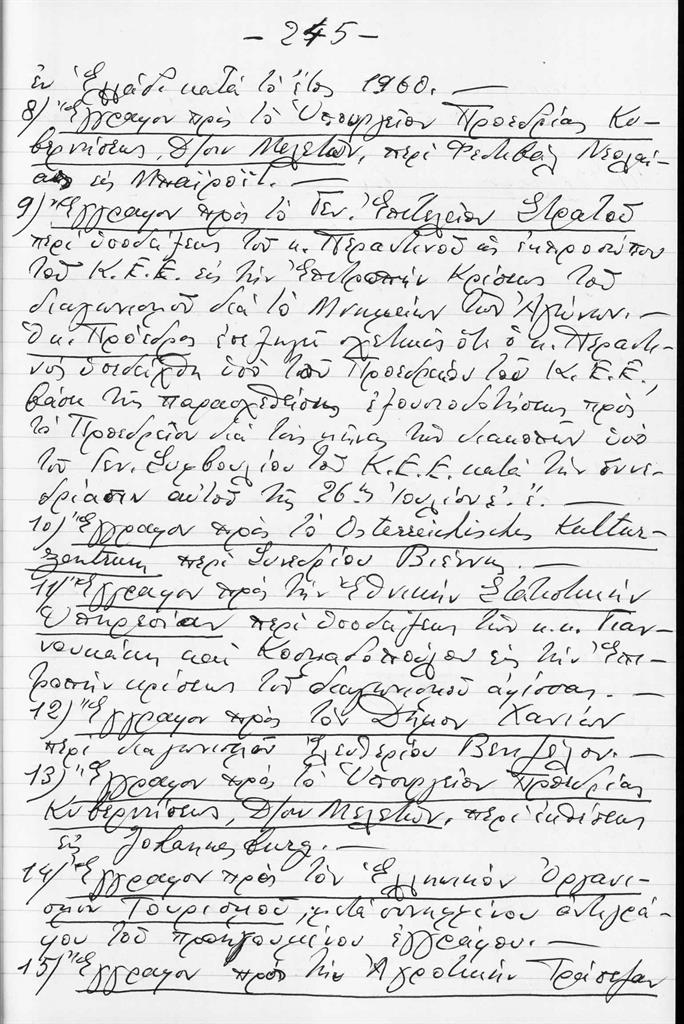 - 245 -
ἐν Ἑλλάδι κατὰ τὸ ἔτος 1960. —
8) Ἔγγραφον πρὸς τὸ Ὑπουργεῖον Προεδρίας Κυ-
βερνήσεως, Δ/σιν Μελετῶν, περὶ Φεστιβὰλ Νεολαί-
ας εἰς Μπαϊρόϊτ. —
9) Ἔγγραφον πρὸς τὸ Γεν. Ἐπιτελεῖον Στρατοῦ
περὶ ὑποδείξεως τοῦ κ. Περαντινοῦ ὡς ἐκπροσώπου
τοῦ Κ.Ε.Ε. εἰς τὴν Ἐπιτροπὴν Κρίσεως τοῦ
διαγωνισμοῦ διὰ τὸ Μνημεῖον τῶν Ἀγώνων. —
Ὁ κ. Πρόεδρος ἐπεξηγεῖ σχετικῶς ὅτι ὁ κ. Περαντι-
νὸς ὑπεδείχθη ὑπὸ τοῦ Προεδρείου τοῦ Κ.Ε.Ε.,
βάσει τῆς παρασχεθείσης ἐξουσιοδοτήσεως πρὸς
τὸ Προεδρεῖον διὰ τοὺς μῆνας τῶν διακοπῶν ὑπὸ
τοῦ Γεν. Συμβουλίου τοῦ Κ.Ε.Ε. κατὰ τὴν συνε-
δρίασιν αὐτοῦ τῆς 26ης Ἰουλίου ἐ.ἔ. —
10) Ἔγγραφον πρὸς τὸ Österreichisches Kultur-
zentrum περὶ Συνεδρίου Βιέννης. —
11) Ἔγγραφον πρὸς τὴν Ἐθνικὴν Στατιστικὴν
Ὑπηρεσίαν περὶ ὑποδείξεως τῶν κ.κ. Γιαν-
νουκάκη καὶ Κοσμαδοπούλου εἰς τὴν Ἐπι-
τροπὴν κρίσεως τοῦ διαγωνισμοῦ ἀφίσσας. —
12) Ἔγγραφον πρὸς τὸν Δῆμον Χανίων
περὶ διαγωνισμοῦ Ἐλευθερίου Βενιζέλου. —
13) Ἔγγραφον πρὸς τὸ Ὑπουργεῖον Προεδρίας
Κυβερνήσεως, Δ/σιν Μελετῶν, περὶ ἐκθέσεως
εἰς Johannesburg. —
14) Ἔγγραφον πρὸς τὸν Ἑλληνικὸν Ὀργανι-
σμὸν Τουρισμοῦ, μετὰ συνημμένου ἀντιγρά-
φου τοῦ προηγουμένου ἐγγράφου. —
15) Ἔγγραφον πρὸς τὴν Ἀγροτικὴν Τράπεζαν